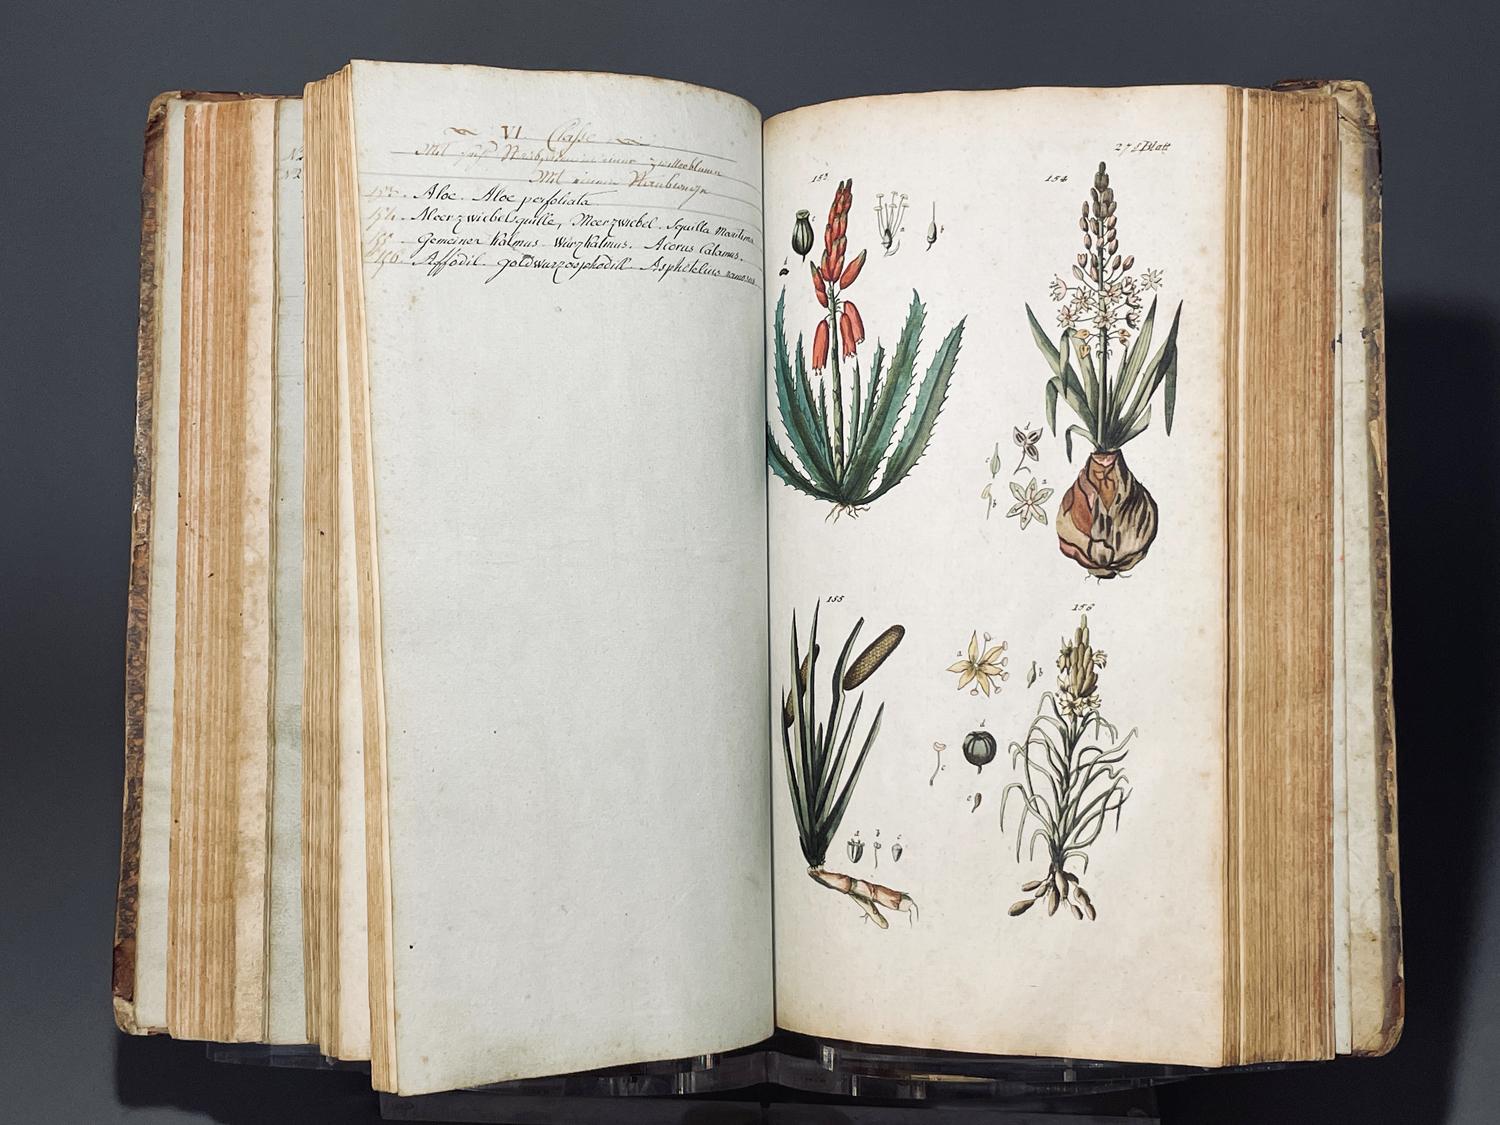 VI. Classe
Mit sechs Staubfäden in einer zwitterblumen
Mit einem Staubwege
153. Aloe. Aloe perfoliata
154. Meerzwiebelsquille, Meerzwiebel. Squilla Maritima.
155. Gemeiner Kalmus Würzkalmus. Acorus Calamus.
156. Affodil. goldwurz
27t Blatt
153
c
a
b
d
154
d
c
a
b
155
a
b
c
156
a
b
d
c
e